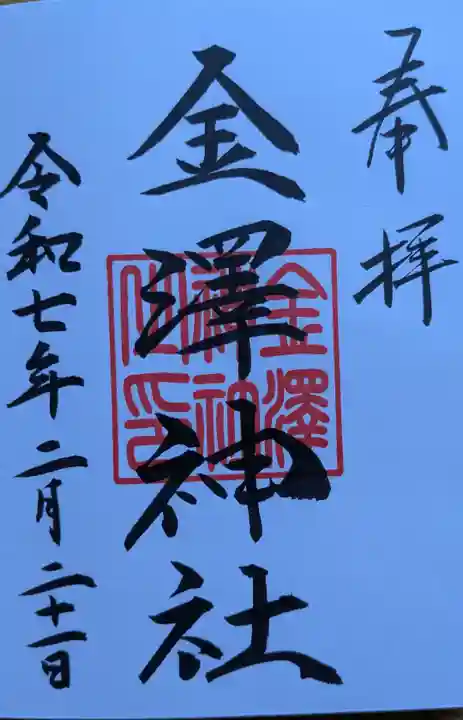 奉拝
金澤神社
金澤
神社
之印
令和七年二月二十一日